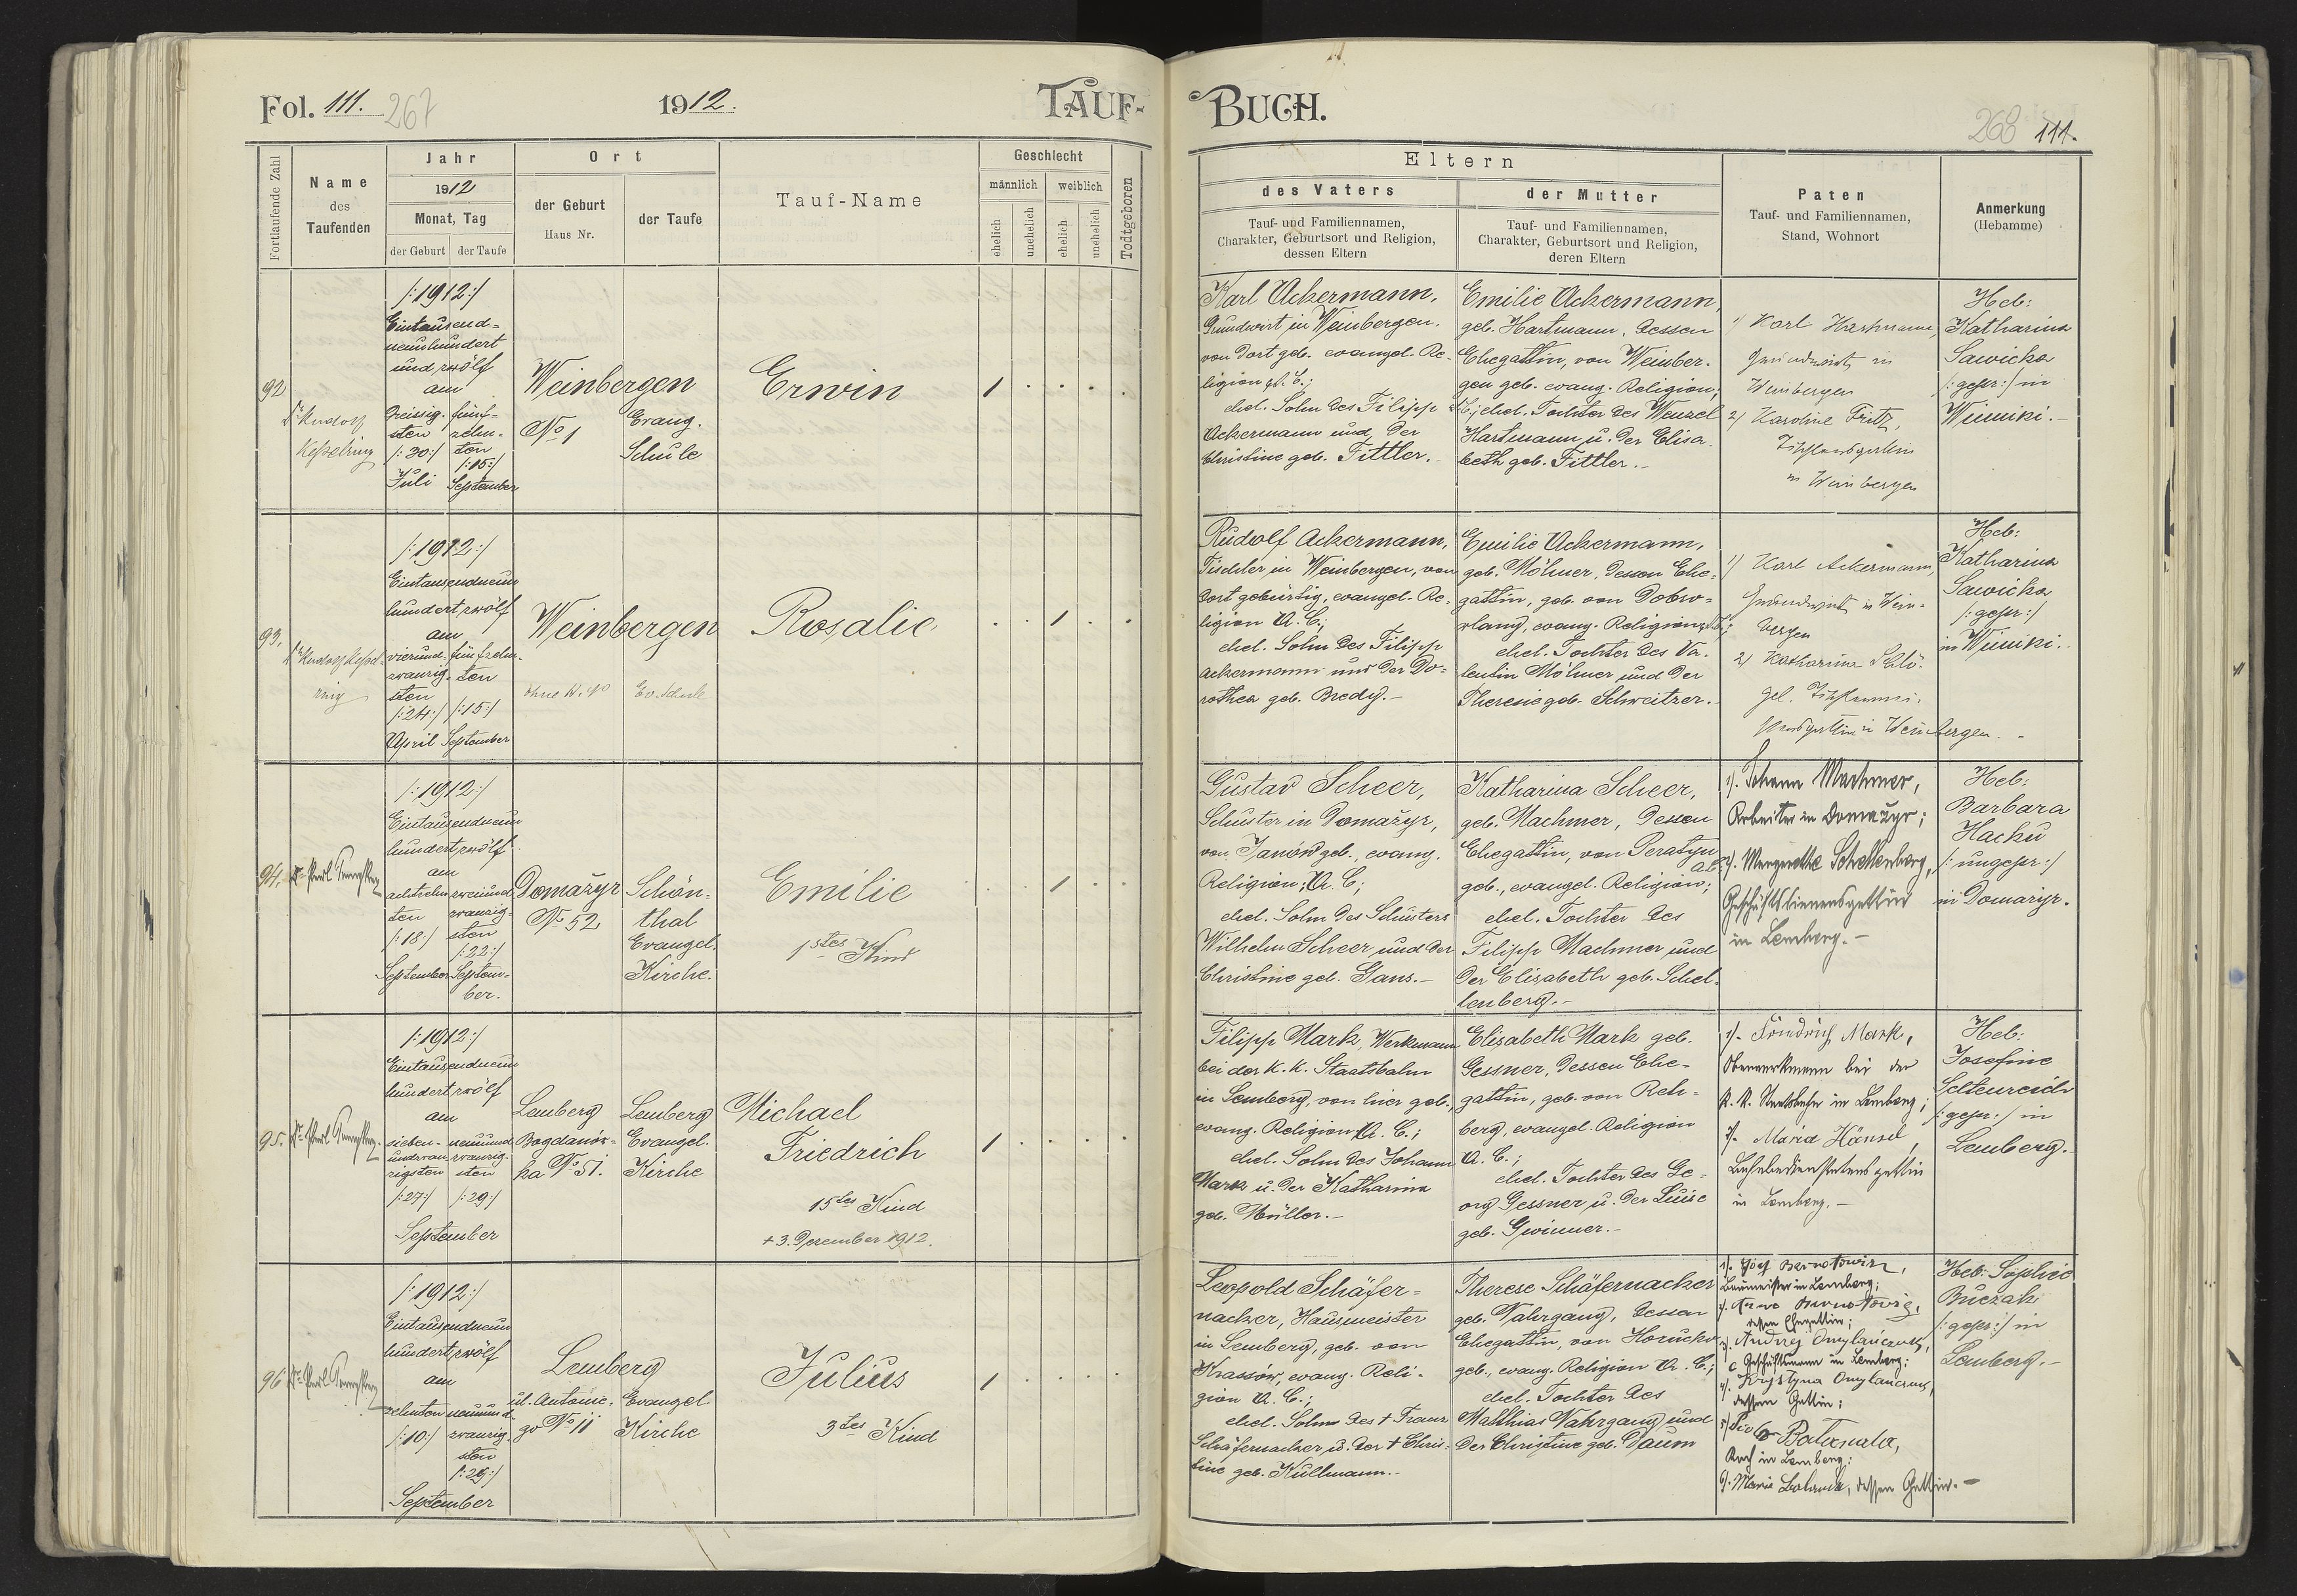 Fol. 111. 267
1912.
TAUF-
BUCH.
268 111.
Fortlaufende Zahl
Name
des
Taufenden
Jahr
1912
Monat, Tag
der Geburt
der Taufe
Ort
der Geburt
Haus Nr.
der Taufe
Tauf-Name
Geschlecht
männlich
weiblich
ehelich
unehelich
ehelich
unehelich
Todtgeboren
Eltern
des Vaters
Tauf- und Familiennamen,
Charakter, Geburtsort und Religion,
dessen Eltern
der Mutter
Tauf- und Familiennamen,
Charakter, Geburtsort und Religion,
deren Eltern
Paten
Tauf- und Familiennamen,
Stand, Wohnort
Anmerkung
(Hebamme)
92
Dr Rudolf
Kesselring
/:1912:/
Eintausend-
neunhundert
und zwölf
am
dreissig-
sten
/:30:/
Juli
fünf-
zehn-
ten
/:15:/
September
Weinbergen
No 1
Evang.
Schule
Erwin
1
Karl Ackermann,
Grundwirt in Weinbergen,
von dort geb. evangel. Re-
ligion A. C.;
ehel. Sohn des Filipp
Ackermann und der
Christine geb. Tittler.-
Emilie Ackermann,
geb. Hartmann, dessen
Ehegattin, von Weinber-
gen geb. evang. Religion;
A. C.; ehel. Tochter des Wenzel
Hartmann u. der Elisa-
beth geb. Tittler.-
1) Karl Hartmann,
Grundwirt in
Weinbergen
2) Karoline Fritz,
in Weinbergen
Heb:
Katharina
Sawicka
/:gepr:/ in
Winniki.-
93.
Dr Rudolf Kessel-
ring
/:1912:/
Eintausendneun
hundert zwölf
am
vierund-
zwanzig-
sten
/:24:/
April
fünfzehn-
ten
/:15:/
September
Weinbergen
ohne H. No
Ev. Schule
Rosalie
1
Rudolf Ackermann,
Tischler in Weinbergen, von
dort gebürtig, evangel. Re-
ligion A. C.;
ehel. Sohn des Filipp
Ackermann und der Do-
rothea geb. Bredy.-
Emilie Ackermann,
geb. Mölmer, dessen Ehe-
gattin, geb. von Dobro-
ehel. Tochter des Va-
lentin Mölmer und der
Theresie geb. Schweitzer.
1) Karl Ackermann,
Grundwirt in Wein-
bergen
2) Katharina
in Weinbergen.-
Heb:
Katharina
Sawicka
/:gepr:/
in Winniki.
94.
/:1912:/
Eintausendneun
hundert zwölf
am
achtzehn-
ten
/:18:/
September
zweiund-
zwanzig-
sten
/:22:/
Septem-
ber.
Domažyr
No 52
Schön-
thal
Evangel.
Kirche.
Emilie
1stes Kind
1
Gustav Scheer,
Schuster in Domažyr,
von Janów geb., evang.
Religion; A. C.;
ehel. Sohn des Schusters
Wilhelm Scheer und der
Christine geb. Gans.-
Katharina Scheer,
geb. Machmer, dessen
Ehegattin, von Peratyn
geb., evangel. Religion; A.C.
ehel. Tochter des
Filipp Machmer und
der Elisabeth geb. Schel-
lenberg.-
1). Johann Machmer,
Arbeiter in Domažyr;
2). Margarethe Schellenberg,
in Lemberg.-
Heb:
Barbara
Hachu
/:ungepr:/
in Domazyr.
95.
/:1912:/
Eintausendneun
hundert zwölf
am
sieben-
undzwan-
zigsten
/:27:/
neunund
zwanzig-
sten
/:29:/
September
Lemberg
Bogdanów-
ka No 51.
Lemberg
Evangel.
Kirche
Michael
Friedrich
15tes Kind
+ 3. Dezember 1912.
1
Filipp Mark, Werkmann
bei der k. k. Staatsbahn
in Lemberg, von hier geb.,
evang. Religion A. C.;
ehel. Sohn des Johann
Mark u. der Katharina
geb. Müller.-
Elisabeth Mark geb.
Gessner, dessen Ehe-
gattin, geb. von Reh-
berg, evangel. Religion
A. C.;
ehel. Tochter des Ge-
org Gessner u. der Luise
geb. Gwinner.-
1). Friedrich Mark,
Oberwerkmann bei der
k. k. Staatsbahn in Lemberg;
2). Maria Hänsel,
in Lemberg.-
Heb:
Josefine
Seltenreich
/:gepr:/ in
Lemberg.
96
/:1912:/
Eintausendneun
hundert zwölf
am
zehnten
/:10:/
neunund-
zwanzig-
sten
/:29:/
September
Lemberg
ul. Antonie-
go No 11
Evangel.
Kirche
Julius
3tes Kind
1
Leopold Schäfer-
nacker, Hausmeister
in Lemberg, geb. von
Krassów, evang. Reli-
gion A. C.;
ehel. Sohn des + Franz
Schäfernacker u. der + Chris-
tine geb. Kullmann.-
Therese Schäfernacker
geb. Wahrgang, dessen
Ehegattin, von Horucko
geb., evang. Religion A. C.;
ehel. Tochter des
Matthias Wahrgang und
der Christine geb. Daum
1). Josef
Baumeister in Lemberg;
2). Anna
dessen Ehegattin;
3). Andrzej
Geschäftsmann in Lemberg;
4). Krystyna
dessen Gattin;
5)
Koch in Lemberg;
6). Maria
dessen Gattin.-
Heb: Sophie
Buczak
/:gepr:/ in
Lemberg.-